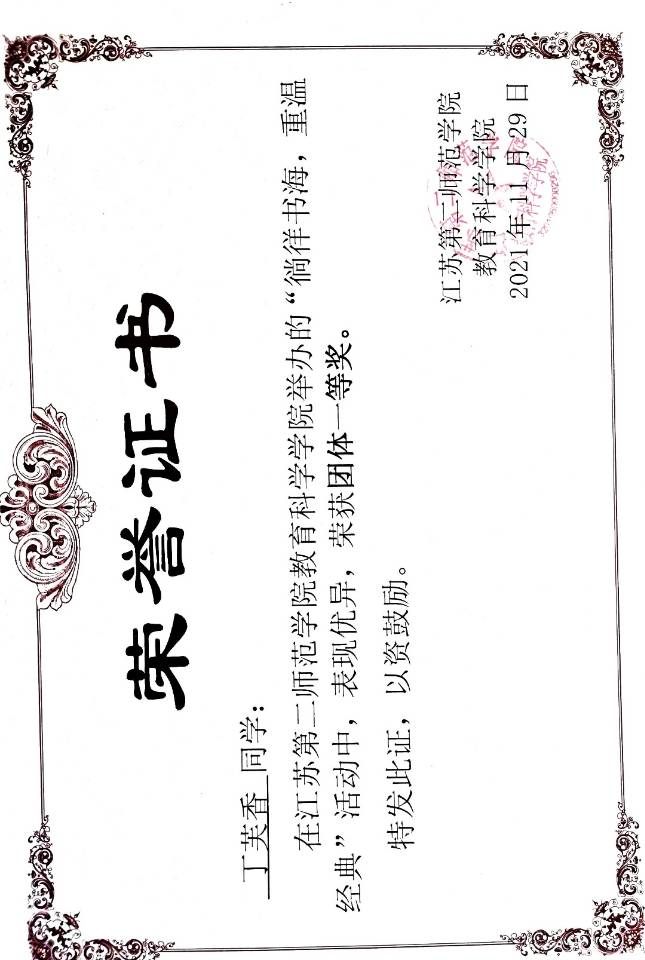 荣誉证书
丁芙香 同学：
在江苏第二师范学院教育科学学院举办的“徜徉书海，重温
经典”活动中，表现优异，荣获团体一等奖。
特发此证，以资鼓励。
江苏第二师范学院
教育科学学院
2021年11月29日